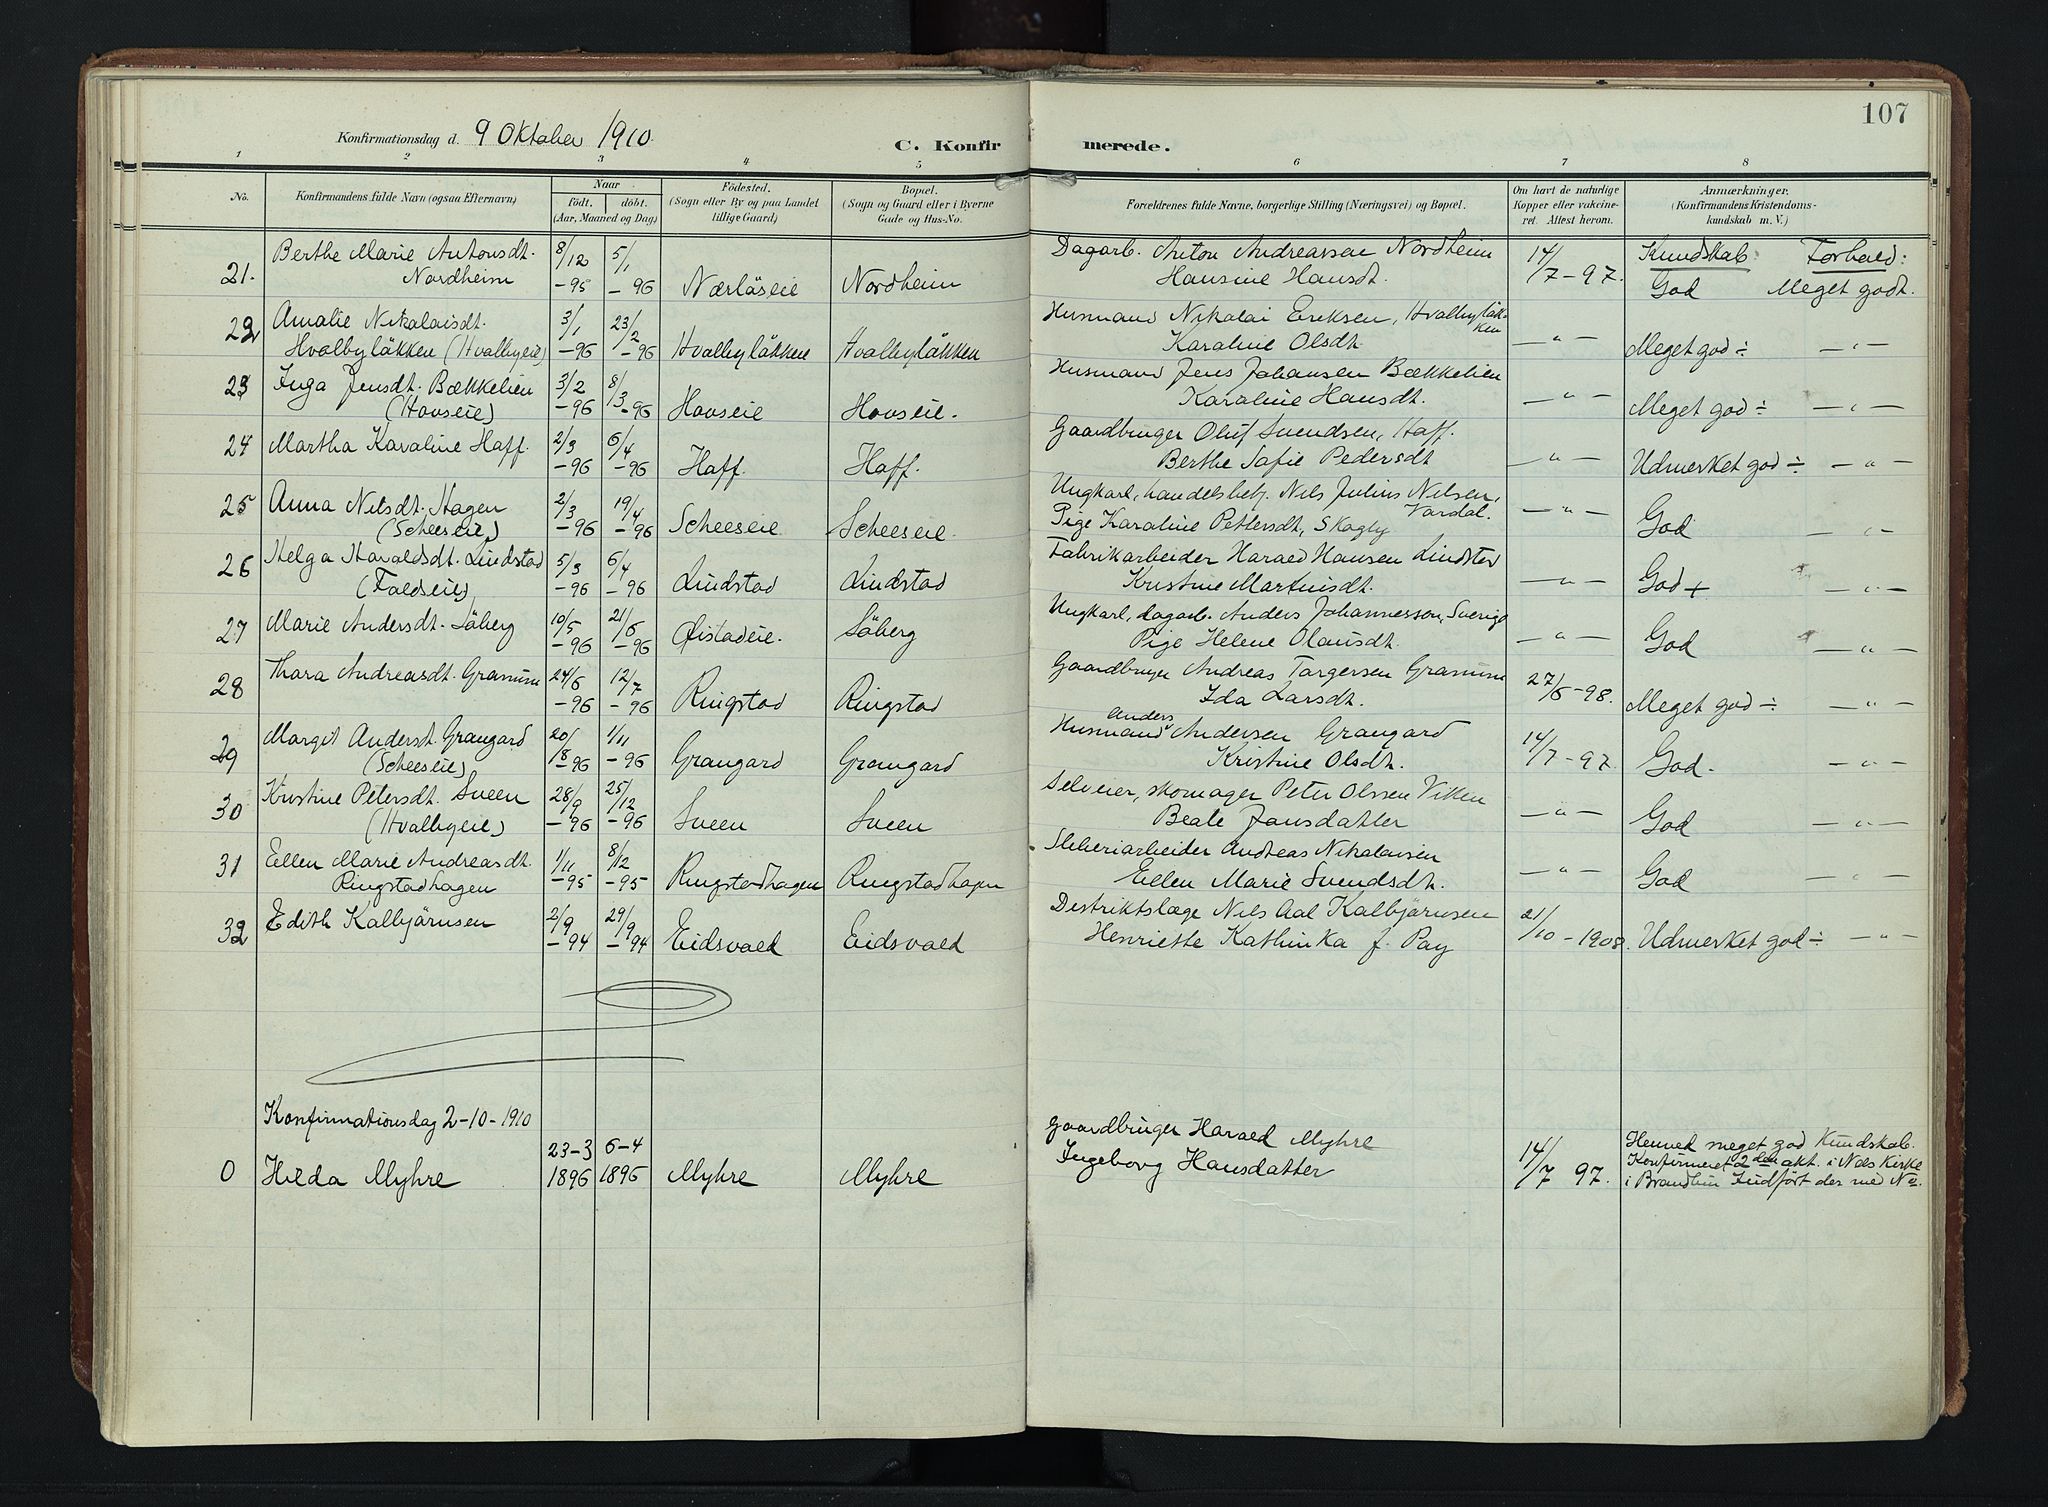 107
Konfirmationsdag d. 9 Oktober 1910.
C. Konfirmerede.
1 2 3 4 5 6 7 8
No. Konfirmandens fulde Navn (ogsaa Efternavn) Naar födt. döbt. (Aar, Maaned og Dag) Födested. (Sogn eller By og paa Landet tillige Gaard) Bopæl. (Sogn og Gaard eller i Byerne Gade og Hus-No. Forældrenes fulde Navne, borgerlige Stilling (Næringsvei) og Bopæl. Om havt de naturlige Kopper eller vakcineret. Attest herom. Anmærkninger. (Konfirmandens Kristendomskundskab m. V.)
Berthe Marie Antonsdt. 8/12 5/1 Dagarb. Anton Andreassen Nordheim 14/7-97. Kundskab: Forhold:
21. Nordheim -95 -96 Nærløseie Nordheim Hansine Hansdt. God Meget godt.
Amalie Nikolaisdt. 3/1 23/2 Husmand Nikolai Eriksen, Hvalbyløkken
22 Hvalbyløkken (Hvalbyeie) -96 -96 Hvalbyløkken Hvalbyløkken Karoline Olsdt. —"— Meget god ÷ —"—
23 Inga Jensdt. Bækkelien 3/2 8/3 Husmand Jens Johansen Bækkelien
(Hovseie) -96 -96 Hovseie Hovseie. Karoline Hansdt. —"— Meget god ÷ —"—
24 Martha Karoline Haff. 2/3 6/4 Gaardbruger Oluf Svendsen, Haff.
-96 -96 Haff. Haff. Berthe Sofie Pedersdt —"— Udmerket god ÷ —"—
25 Anna Nilsdt. Hagen 2/3 19/4 Ungkarl, handelsbetj. Nils Julius Nilsen, Vardal.
(Scheeseie) -96 -96 Scheeseie Scheeseie. Pige Karoline Pettersdt, Skogly —"— God —"—
26 Helga Haraldsdt. Lindstad 5/3 6/4 Fabrikarbeider Harald Hansen Lindstad
(Faldseie) -96 -96 Lindstad Lindstad Kristine Martinisdt. —"— God + —"—
27 Marie Andersdt. Søberg 10/5 21/6 Ungkarl, dagarb. Anders Johannesson, Sverige
-96 -96 Øistadeie. Søberg Pige Helene Olausdt. —"— God —"—
28 Thora Andreasdt. Granum 24/6 12/7 Gaardbruger Andreas Torgersen Granum 27/6-98.
-96 -96 Ringstad Ringstad Ida Larsdt. Meget god ÷ —"—
29 Margit Andersdt. Grangard 20/8 1/11 Husmand Anders Andersen Grangard 14/7-97
(Scheeseie) -96 -96 Grangard Grangard Kristine Olsdt. God. —"—
30 Kristine Petersdt. Sveen 28/9 25/12 Selveier, skomager Peter Olssen Viken
(Hvalbyeie) -96 -96 Sveen Sveen Beate Jansdatter —"— God —"—
31 Ellen Marie Andreasdt. 1/11 8/12 Sliberiarbeider Andreas Nikolaisen
Ringstadhagen -95 -95 Ringstadhagen Ringstadhagen Ellen Marie Svendsdt. —"— God —"—
32 Edith Kalbjørnsen 2/9 29/9 Destriktslæge Nils Aal Kalbjørnsen 21/10-1908.
-94 -94 Eidsvold Eidsvold Henriette Kathinka f. Pay Udmerket god ÷ —"—
Konfirmationsdag 2-10-1910
23-3 6-4 Gaardbruger Harald Myhre 14/7 97. Henved meget god Kundskab.
0 Hilda Myhre 1896 1896 Myhre Myhre Ingeborg Hansdatter Konfirmeret 2den okt. i Nes Kirke
i Brandbu Indført der med No.